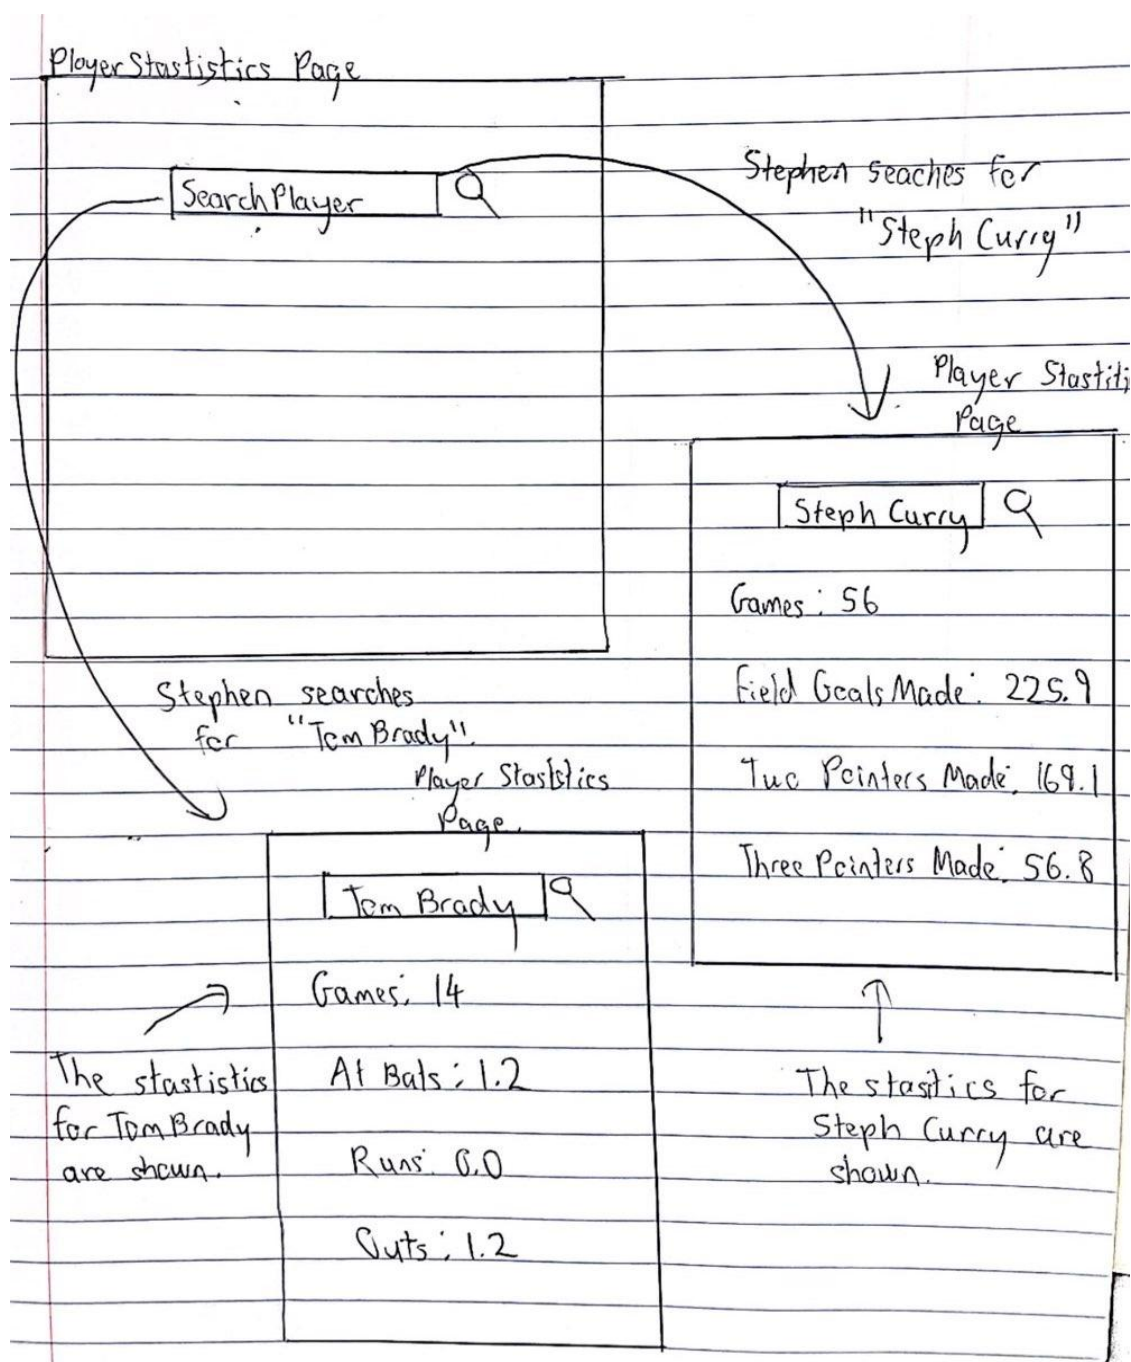 Player Stastistics Page
Search Player
Stephen seaches for
"Steph Curry"
Player Stastiti
Page
Steph Curry
Games: 56
Field Goals Made: 225.9
Two Pointers Made: 169.1
Three Pointers Made: 56.8
The stastitics for
Steph Curry are
shown.
Stephen searches
for "Tom Brady".
Player Stastistics
Page.
Tom Brady
Games: 14
At Bats: 1.2
Runs: 0.0
Outs: 1.2
The stastistics
for Tom Brady
are shown.